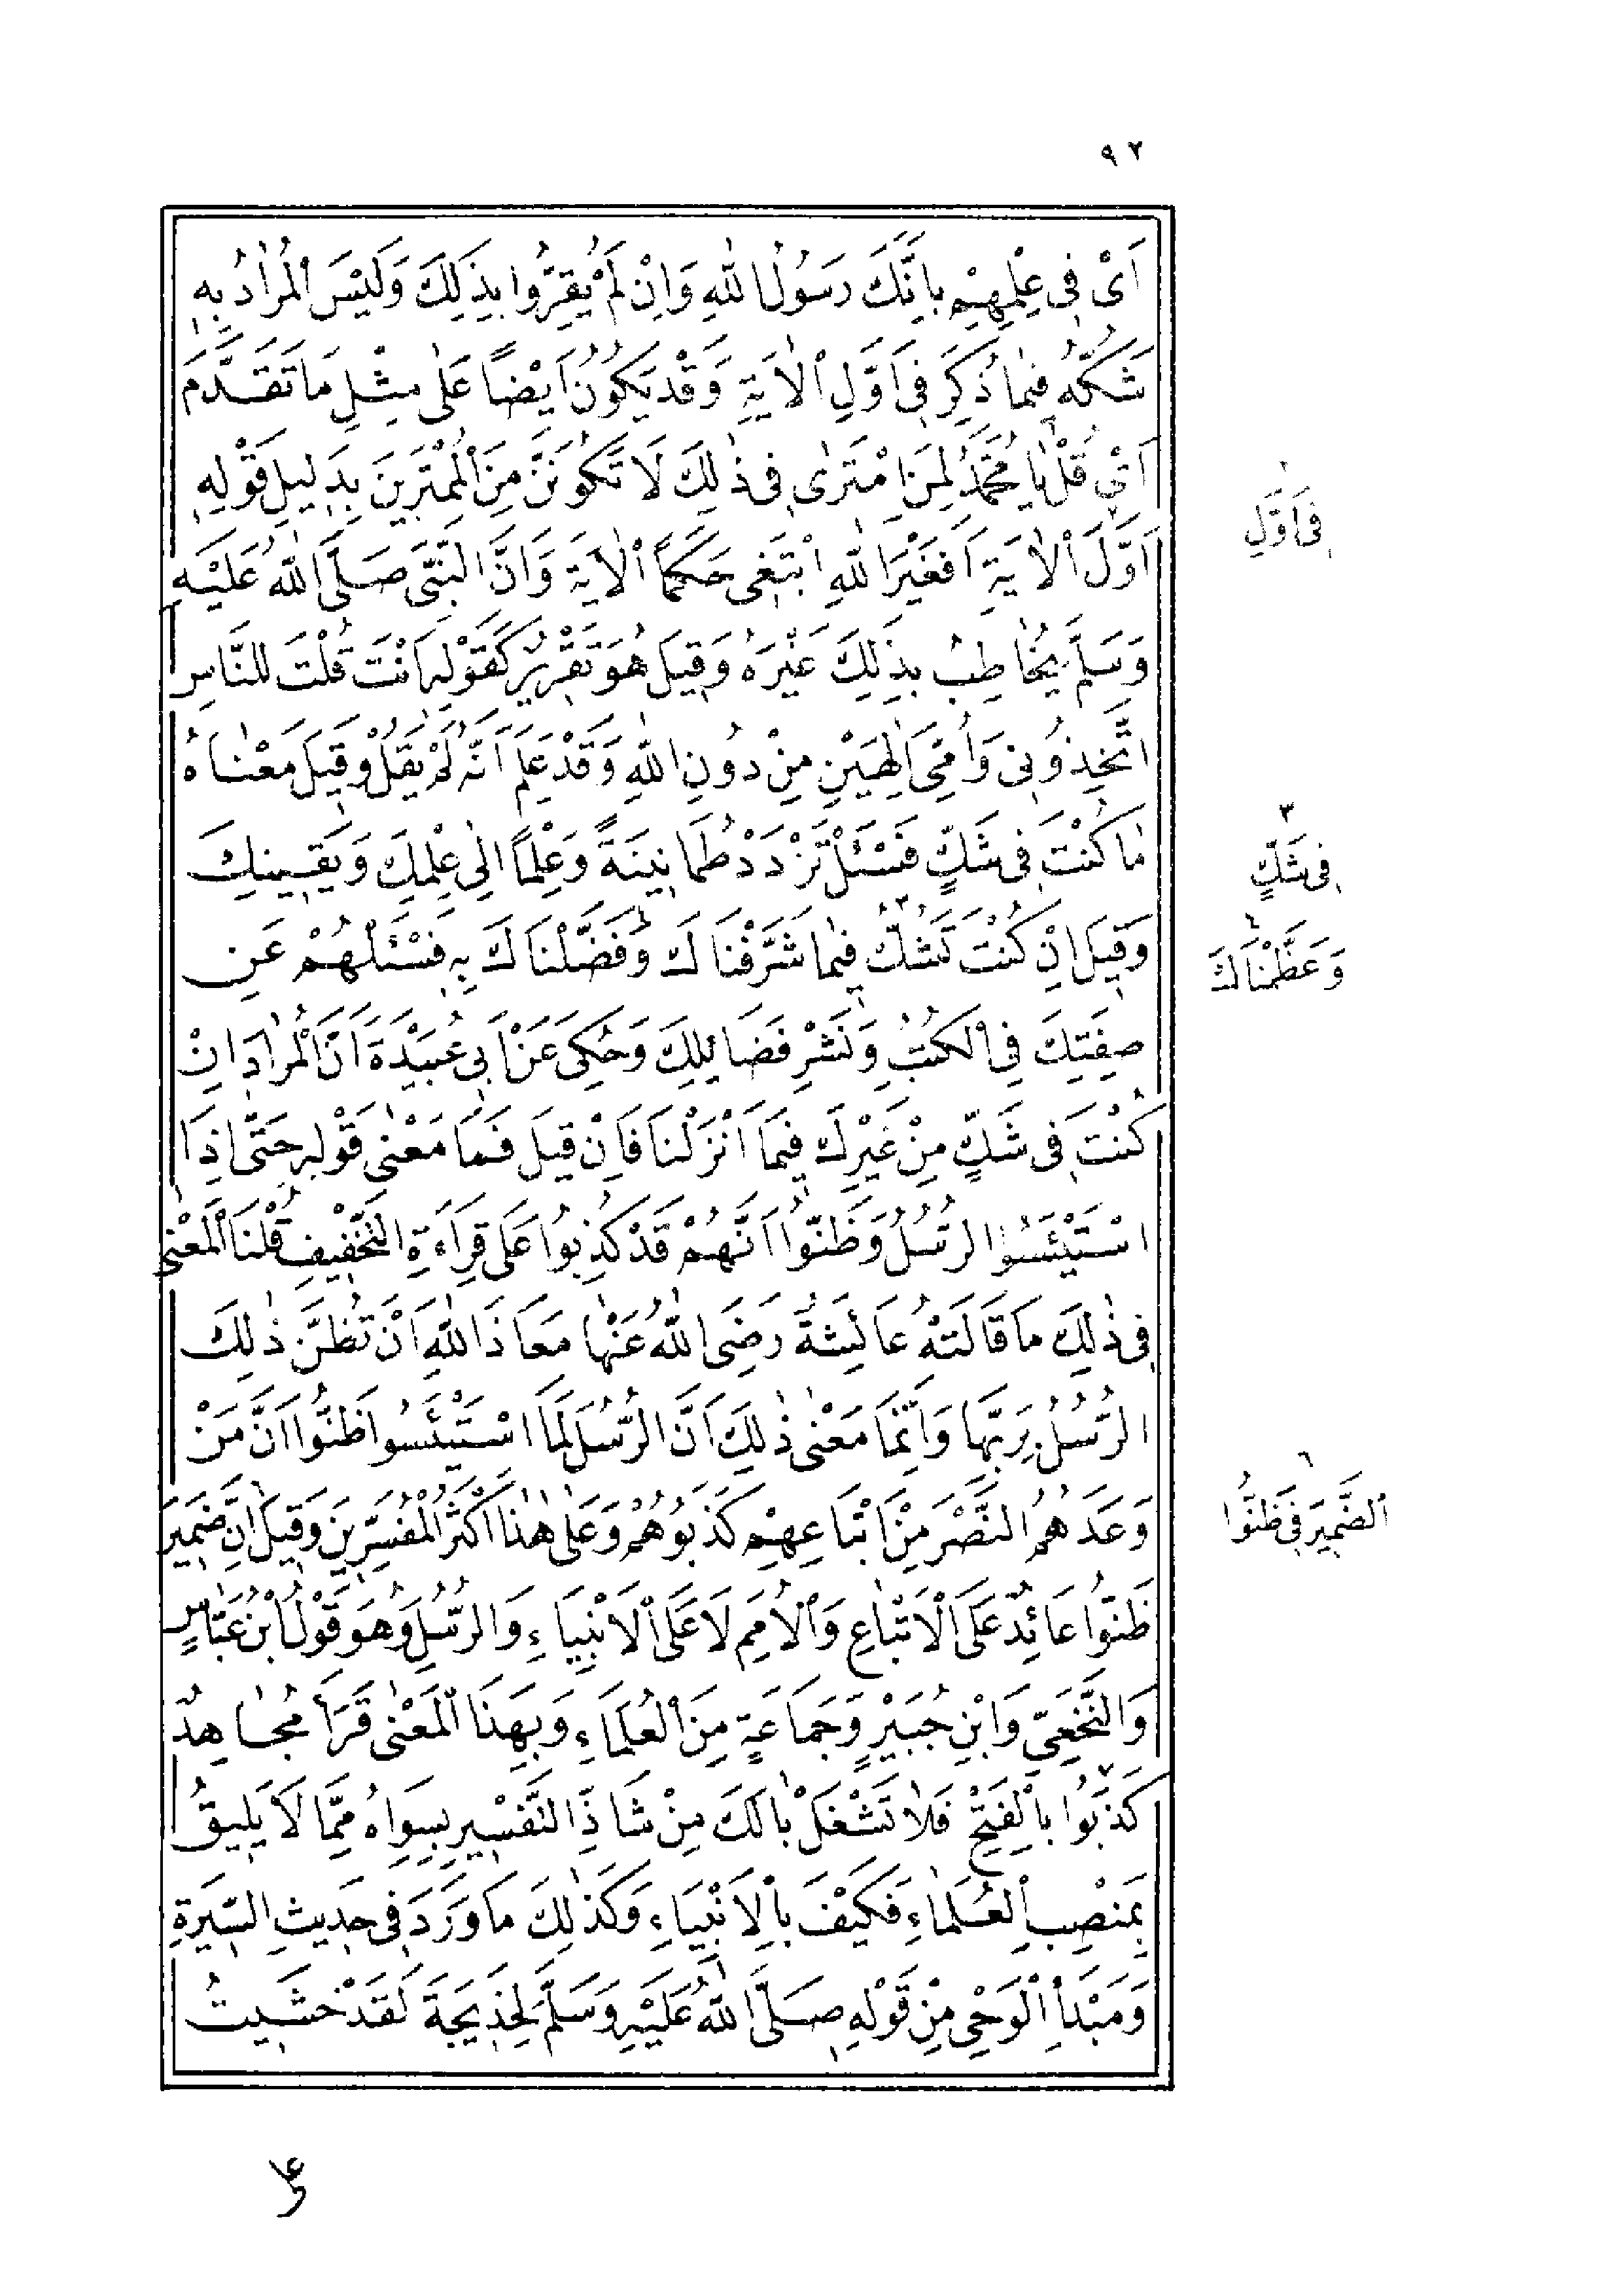 ٩٢
اَىْ فِى عِلْمِهِمْ بِاَنَّكَ رَسُولُ اللهِ وَاِنْ لَمْ يُقِرُّوا بِذٰلِكَ وَلَيْسَ الْمُرَادُ بِهٖ
شَكَّهُ فِيمَا ذُكِرَ فِى اَوَّلِ الْاٰيَةِ وَقَدْ يَكُونُ اَيْضًا عَلٰى مِثْلِ مَا تَقَدَّمَ
اَىْ قُلْ يَا مُحَمَّدُ لِمَنِ امْتَرٰى فِى ذٰلِكَ لَا تَكُونَنَّ مِنَ الْمُمْتَرِينَ بِدَلِيلِ قَوْلِهٖ
اَوَّلَ الْاٰيَةِ اَفَغَيْرَ اللهِ اَبْتَغِى حَكَمًا الْاٰيَةَ وَاَنَّ النَّبِىَّ صَلَّى اللهُ عَلَيْهِ
وَسَلَّمَ يُخَاطِبُ بِذٰلِكَ غَيْرَهُ وَقِيلَ هُوَ تَقْرِيرٌ كَقَوْلِهٖ اَنْتَ قُلْتَ لِلنَّاسِ
اتَّخِذُونِى وَاُمِّىَ اِلٰهَيْنِ مِنْ دُونِ اللهِ وَقَدْ عَلِمَ اَنَّهُ لَمْ يَقُلْ وَقِيلَ مَعْنَاهُ
مَا كُنْتَ فِى شَكٍّ فَسْئَلْ تَزْدَدْ طُمَانِينَةً وَعِلْمًا اِلٰى عِلْمِكَ وَيَقِينِكَ
وَقِيلَ اِنْ كُنْتَ تَشُكُّ فِيمَا شَرَّفْنَاكَ وَفَضَّلْنَاكَ بِهٖ فَسْئَلْهُمْ عَنْ
صِفَتِكَ فِى الْكُتُبِ وَنَشْرِ فَضَائِلِكَ وَحُكِىَ عَنْ اَبِى عُبَيْدَةَ اَنَّ الْمُرَادَ اِنْ
كُنْتَ فِى شَكٍّ مِنْ غَيْرِكَ فِيمَا اَنْزَلْنَا فَاِنْ قِيلَ فَمَا مَعْنٰى قَوْلِهٖ حَتّٰى اِذَا
اسْتَيْئَسَ الرُّسُلُ وَظَنُّوا اَنَّهُمْ قَدْ كُذِبُوا عَلٰى قِرَاءَةِ التَّخْفِيفِ قُلْنَا الْمَعْنٰى
فِى ذٰلِكَ مَا قَالَتْهُ عَائِشَةُ رَضِىَ اللهُ عَنْهَا مَعَاذَ اللهِ اَنْ تَظُنَّ ذٰلِكَ
الرُّسُلُ بِرَبِّهَا وَاِنَّمَا مَعْنٰى ذٰلِكَ اَنَّ الرُّسُلَ لَمَّا اسْتَيْئَسُوا ظَنُّوا اَنَّ مَنْ
وَعَدَهُمُ النَّصْرَ مِنْ اَتْبَاعِهِمْ كَذَبُوهُمْ وَعَلٰى هٰذَا اَكْثَرُ الْمُفَسِّرِينَ وَقِيلَ اِنَّ ضَمِيرَ
ظَنُّوا عَائِدٌ عَلَى الْاَتْبَاعِ وَالْاُمَمِ لَا عَلَى الْاَنْبِيَاءِ وَالرُّسُلِ وَهُوَ قَوْلُ ابْنِ عَبَّاسٍ
وَالنَّخَعِىِّ وَابْنِ جُبَيْرٍ وَجَمَاعَةٍ مِنَ الْعُلَمَاءِ وَبِهٰذَا الْمَعْنٰى قَرَأَ مُجَاهِدٌ
كَذَبُوا بِالْفَتْحِ فَلَا تَشْغَلْ بَالَكَ مِنْ شَاذِّ التَّفْسِيرِ بِسِوَاهُ مِمَّا لَا يَلِيقُ
بِمَنْصِبِ الْعُلَمَاءِ فَكَيْفَ بِالْاَنْبِيَاءِ وَكَذٰلِكَ مَا وَرَدَ فِى حَدِيثِ السِّيرَةِ
وَمَبْدَأِ الْوَحْىِ مِنْ قَوْلِهٖ صَلَّى اللهُ عَلَيْهِ وَسَلَّمَ لِخَدِيجَةَ لَقَدْ خَشِيتُ
١
فِى اَوَّلِ
٣
فِى شَكٍّ
٤
وَعَظَّمْنَاكَ
٦
اَلضَّمِيرَ فِى ظَنُّوا
على